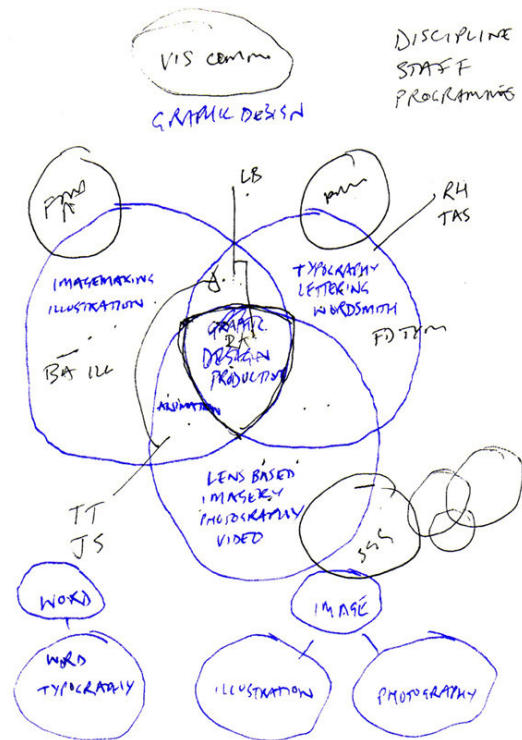 VIS comm
DISCIPLINE
STAFF
PROGRAMMES
GRAPHIC DESIGN
LB
RH
TAS
IMAGEMAKING
ILLUSTRATION
TYPOGRAPHY
LETTERING
WORDSMITH
GRAPHIC
BA
DESIGN
PRODUCTION
BA ILL
ANIMATION
LENS BASED
IMAGERY
PHOTOGRAPHY
VIDEO
TT
JS
WORD
IMAGE
WORD
TYPOGRAPHY
ILLUSTRATION
PHOTOGRAPHY